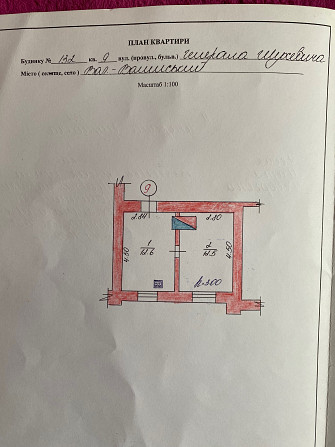 ПЛАН КВАРТИРИ
Будинку № 132 кв. 9 вул. (провул., бульв.) Генерала Шухевича
Місто ( селище, село )
Масштаб 1:100
9
2.84 2.80
4.50 1 2 4.50
12.6 12.5
h=3.00